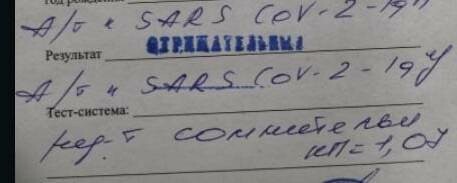 год рождения
А/т к SARS CoV-2-19
Результат ОТРИЦАТЕЛЬНЫЙ
А/т к SARS CoV-2-19
Тест-система:
рез-т сомнительн
КП=1,0